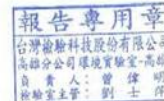 報告專用章
台灣檢驗科技股份有限公司
高雄分公司環境實驗室-高雄
負責人：曾偉
檢驗室主管：劉士